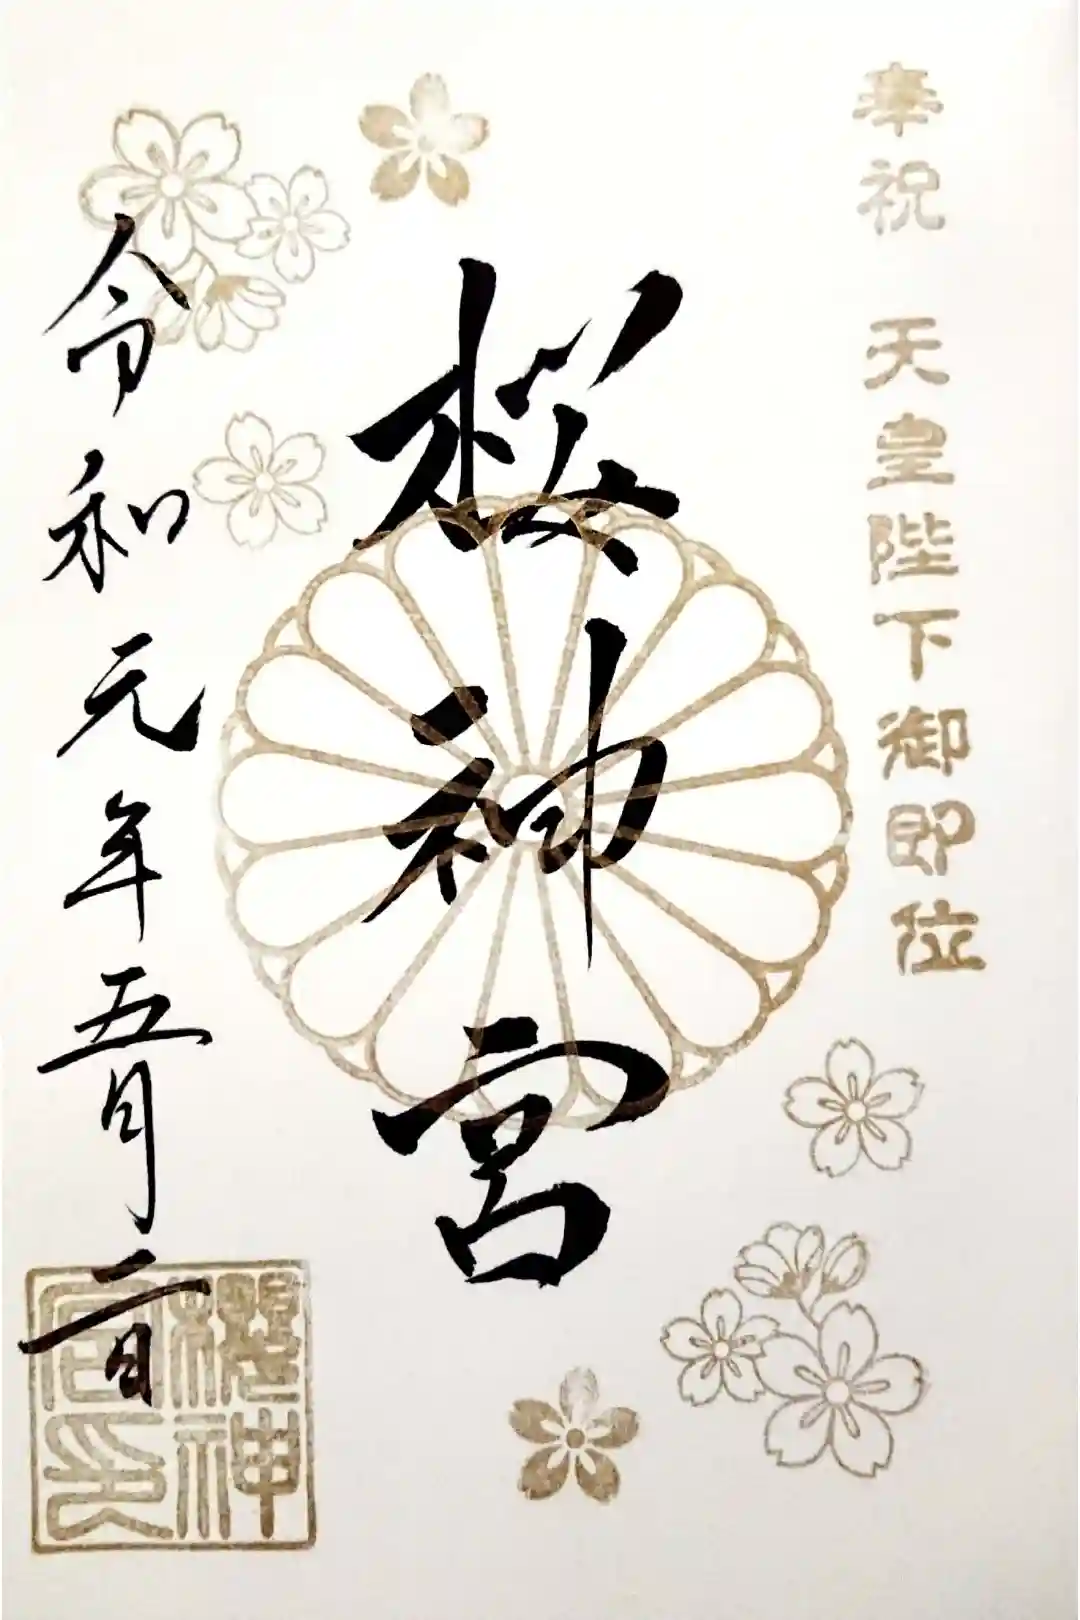 奉祝 天皇陛下御即位
桜神宮
令和元年五月二日
櫻神
宮印